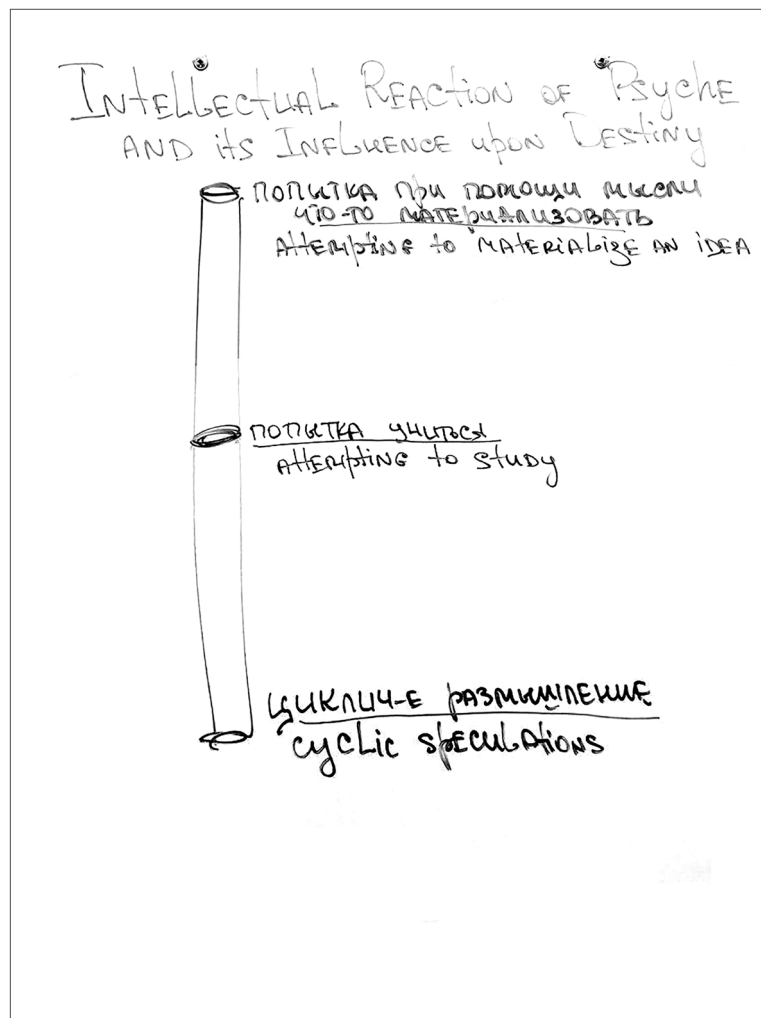 Intellectual Reaction of Psyche
and its Influence upon Destiny
попытка при помощи мысли
что-то материализовать
attempting to materialize an idea
попыткa учиться
attempting to study
циклич-е размышление
cyclic speculations